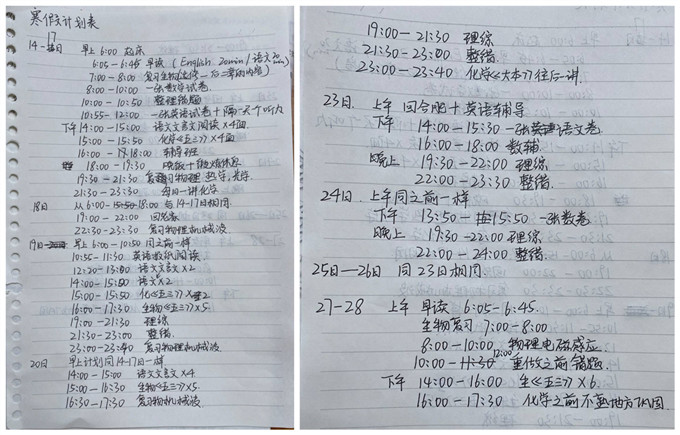 寒假计划表
14-17日 早上 6:00 起床
6:05-6:45 早读 (English 20min/语文20min)
7:00-8:00 复习生物(选修一后二章的内容)
8:00-10:00 一张数学试卷
10:00-10:50 整理错题
10:55-12:00 一张英语试卷+隔一天个听力
下午 14:00-15:00 语文文言文阅读×4面
15:00-15:50 化学《五三》×4面
16:00-18:00 辅导班
18:00-19:30 晚饭+
19:30-21:30 复习物理 热学,光学
21:30-23:30 每日一讲化学
18日 从6:00-18:00 与14-17日相同
19:00-22:00 回老家
22:30-23:30 复习物理机械波
19日 早上 6:00-10:50 同之前一样
10:55-11:30 英语报纸阅读
12:20-13:00 语文文言×2
14:00-15:50 语文×2
15:00-15:50 化《五三》×2
16:00-17:30 生物《五三》×5
19:00-21:30 理综
21:30-23:00 整错
23:00-23:40 复习物理机械波
20日 早上计划同14-17日一样
14:00-15:00 语文文言×4
15:00-16:30 生物《五三》×5
16:30-17:30 复习物机械波
19:00-21:30 理综
21:30-23:00 整错
23:00-23:40 化学《大本》往后一讲
23日 上午 回合肥+英语辅导
下午 14:00-15:30 一张语文卷
16:00-18:00 数辅
晚上 19:30-22:00 理综
22:00-23:30 整错
24日 上午同之前一样
下午 13:50-15:50 一张数卷
晚上 19:30-22:00 理综
22:00-24:00 整错
25日-26日 同23日相同
27-28 上午 早读 6:05-6:45
生物复习 7:00-8:00
8:00-10:00 物理电磁感应
10:00-12:00 重做之前错题
下午 14:00-16:00 生《五三》×6
16:00-17:30 化学之前不熟地方巩固